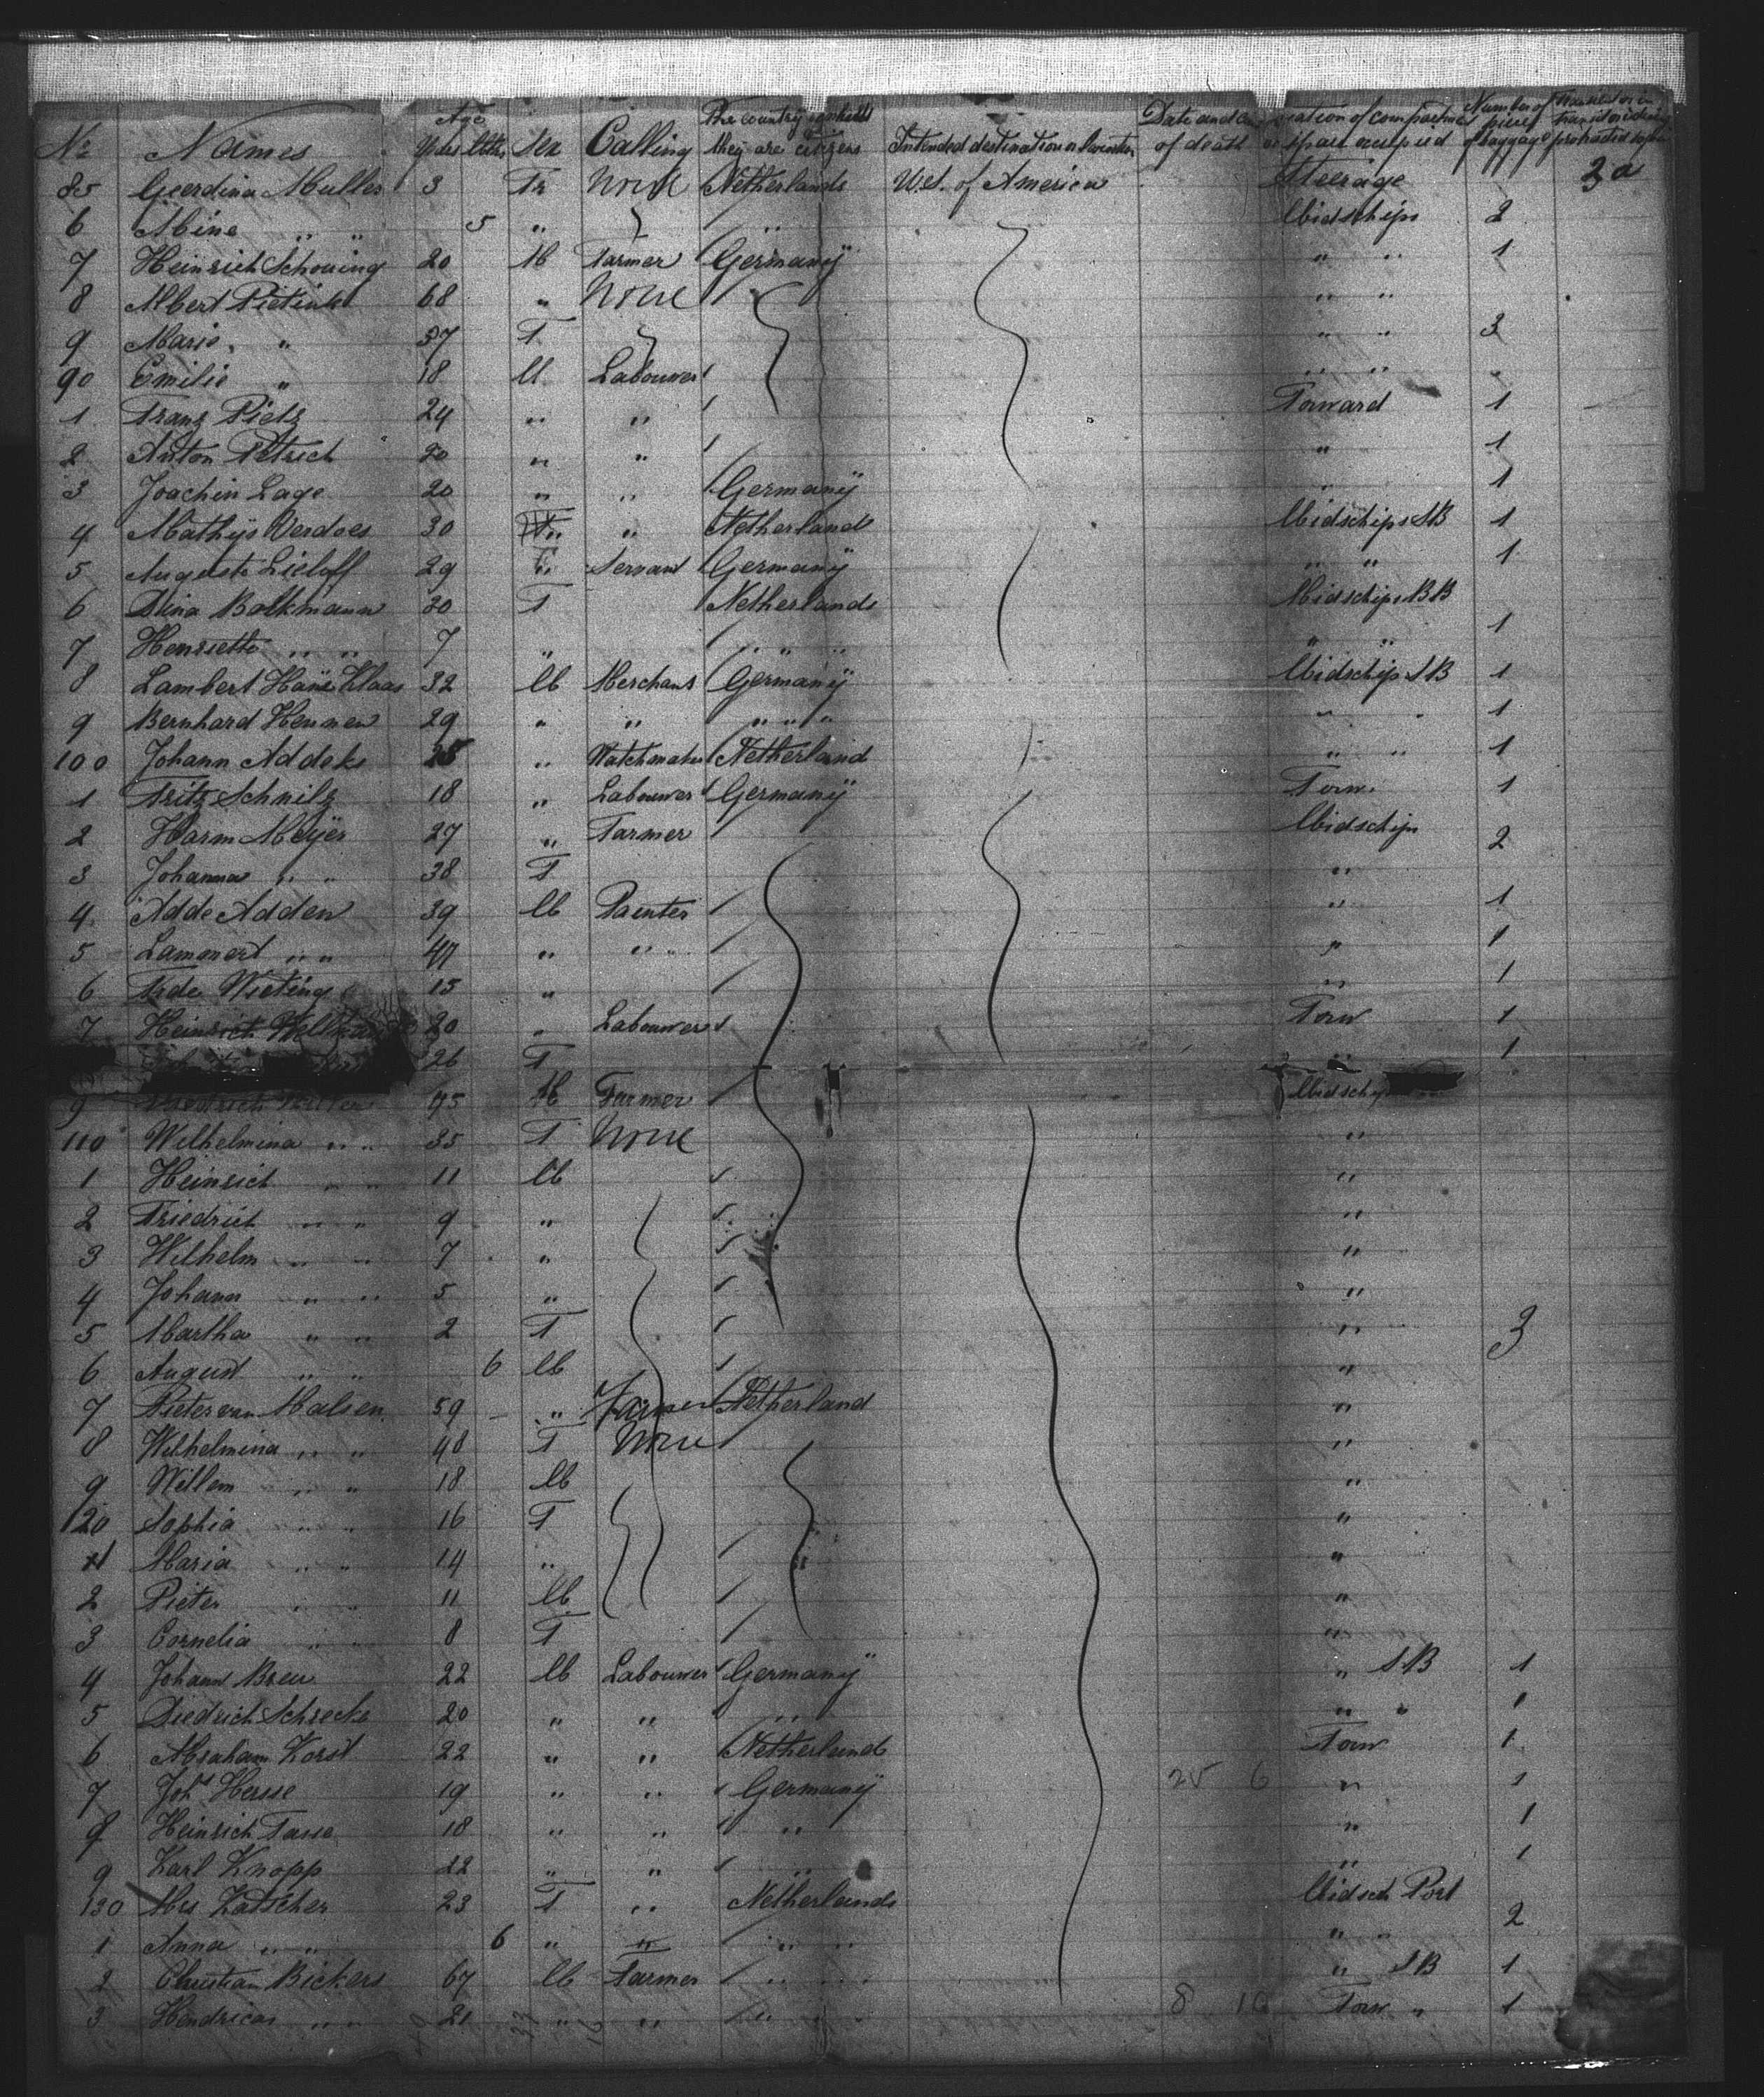 No Names Age Years Mths Sex Calling The country of which they are citizens Intended destination or location Date and cause of death Location of compartment or space occupied Number of pieces of baggage Transient or in transit or intending protracted sojourn
85 Geerdina Muller 3 F none Netherlands U.St. of America Steerage 3a
6 Mine " " 5 " Midschips 2
7 Heinrich Schoning 20 M Farmer Germany " " 1
8 Albert Pietink 68 " none " "
9 Marie " 37 F " " 3
90 Emilie " 18 M Labouwer " "
1 Franz Pietz 24 " " Forward 1
2 Anton Petrich 20 " " " 1
3 Joachin Lage 20 " " Germany " 1
4 Mathijs Verdoes 30 " " Netherland Midschips SB 1
5 Auguste Lieloff 29 F Servant Germany " " 1
6 Dina Bolkmann 30 F Netherlands Midschips BB
7 Henriette " " 7 " " " " " " 1
8 Lambert Klaas 32 M Merchant Germany Midschip SB 1
9 Bernhard Hennen 29 " " " " " " " 1
100 Johann Addeks 25 " Watchmaker Netherland " " 1
1 Fritz Schnilz 18 " Labouwer Germany Forw. 1
2 Harm Meijer 27 " Farmer Midschip 2
3 Johanna " " 38 F "
4 Adde Adden 39 M Painter " 1
5 Lammert " " 47 " " " " 1
6 Frde Wieting 15 " " 1
7 Heinrich 20 " Labouwer Forw 1
26 F " 1
9 Friedrich 45 M Farmer Midschip
110 Wilhelmina " " 35 F none "
1 Heinrich " " 11 M "
2 Friedrich " " 9 " "
3 Wilhelm " " 7 " "
4 Johann " " 5 " "
5 Martha " " 2 F " 3
6 August " " 6 M "
7 Pieter van Malsen 59 " Farmer Netherland "
8 Wilhelmina " " 48 F none "
9 Willem " " 18 M "
120 Sophia " " 16 F "
1 Maria " " 14 " "
2 Pieter " " 11 M "
3 Cornelia " " 8 F "
4 Johann Breu 22 M Labouwer Germany " SB 1
5 Diedrich Schrecke 20 " " " " " " 1
6 Abraham Korst 22 " " Netherland Forw 1
7 Joh. Hesse 19 " " Germany 25 6 " 1
8 Heinrich Tasse 18 " " " " 1
9 Karl Knopp 22 " " " " 1
130 Mrs Katscher 23 F " Netherlands Midsch Port
1 Anna " " 6 " " " " " " 2
2 Christian Bickers 67 M Farmer " " " SB 1
3 Hendricas " " 21 " " " 8 10 Forw " 1